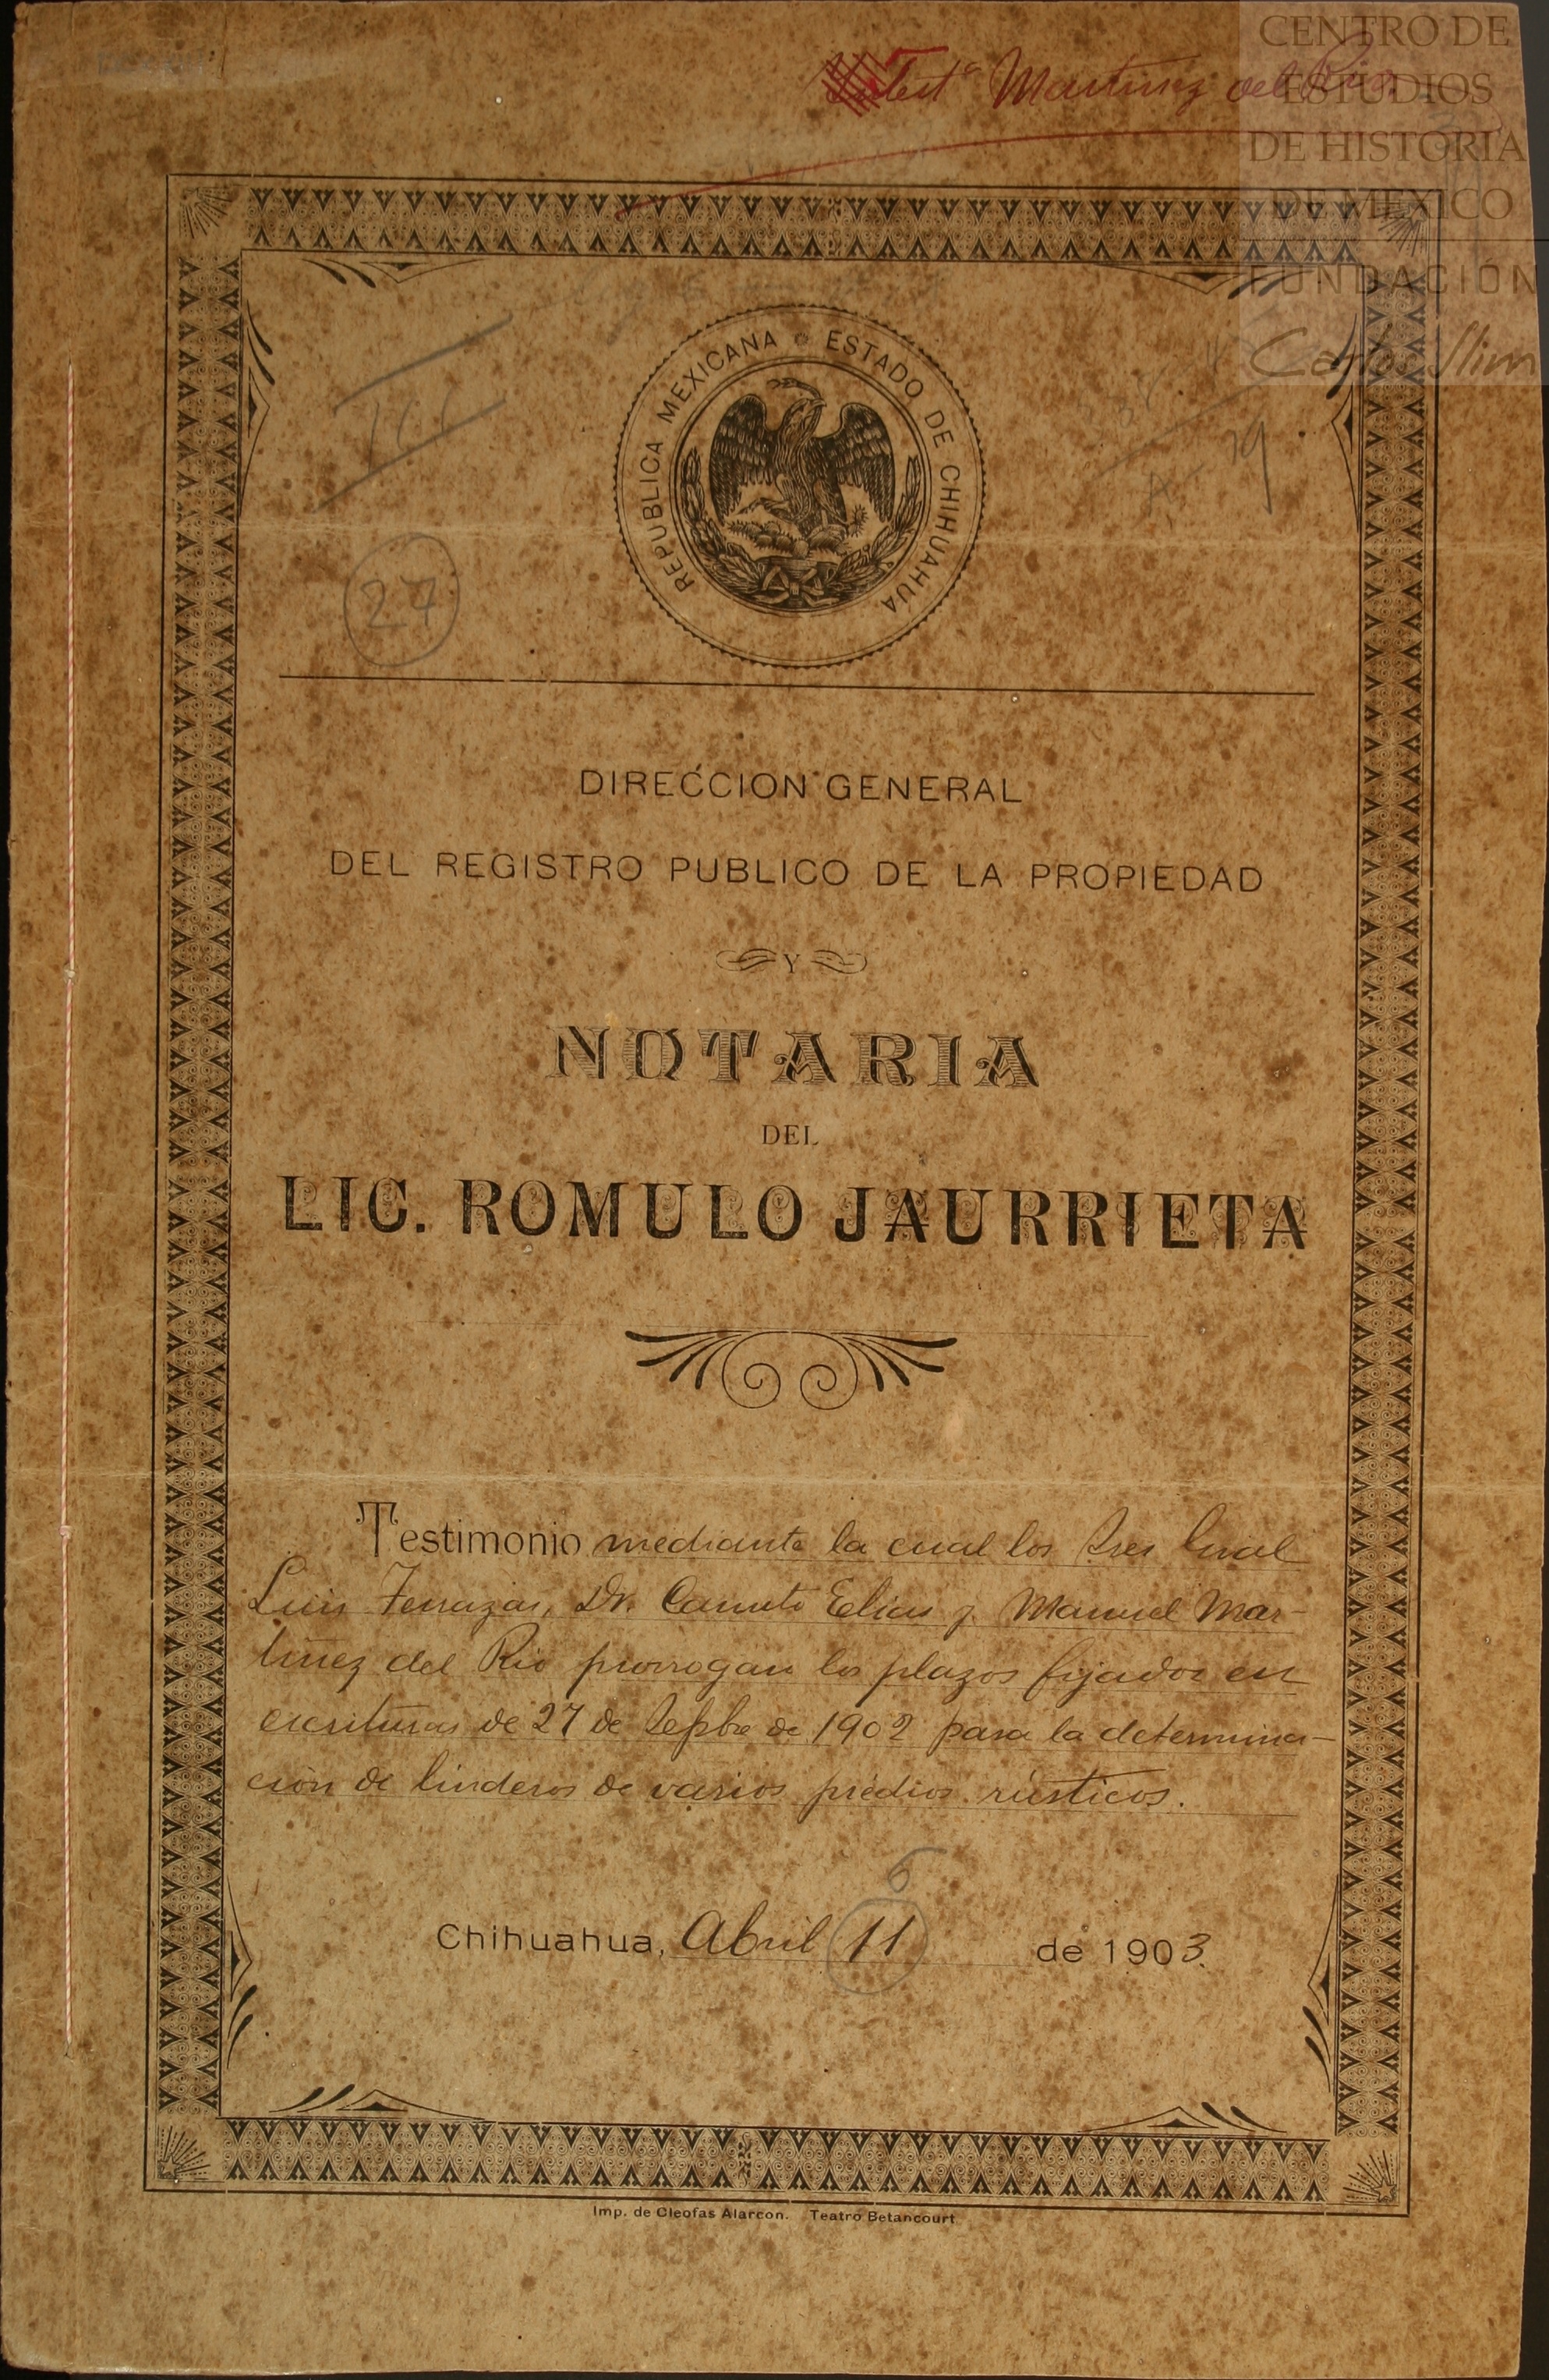 Testᵃ Martinez del Rio
CENTRO DE
ESTUDIOS
DE HISTORIA
DE MEXICO
FUNDACIÓN
Carlos Slim
REPUBLICA MEXICANA
ESTADO DE CHIHUAHUA
27
DIRECCION GENERAL
DEL REGISTRO PUBLICO DE LA PROPIEDAD
Y
NOTARIA
DEL
LIC. ROMULO JAURRIETA
Testimonio mediante la cual los Sres Gral
Luis Terrazas, Dr. Canuto Elias y Manuel Mar-
tinez del Rio prorrogan los plazos fijados en
escrituras de 27 de Sepbre de 1902 para la determina-
ción de linderos de varios prédios rústicos.
6
Chihuahua, Abril 11 de 1903.
Imp. de Cleofas Alarcon. Teatro Betancourt